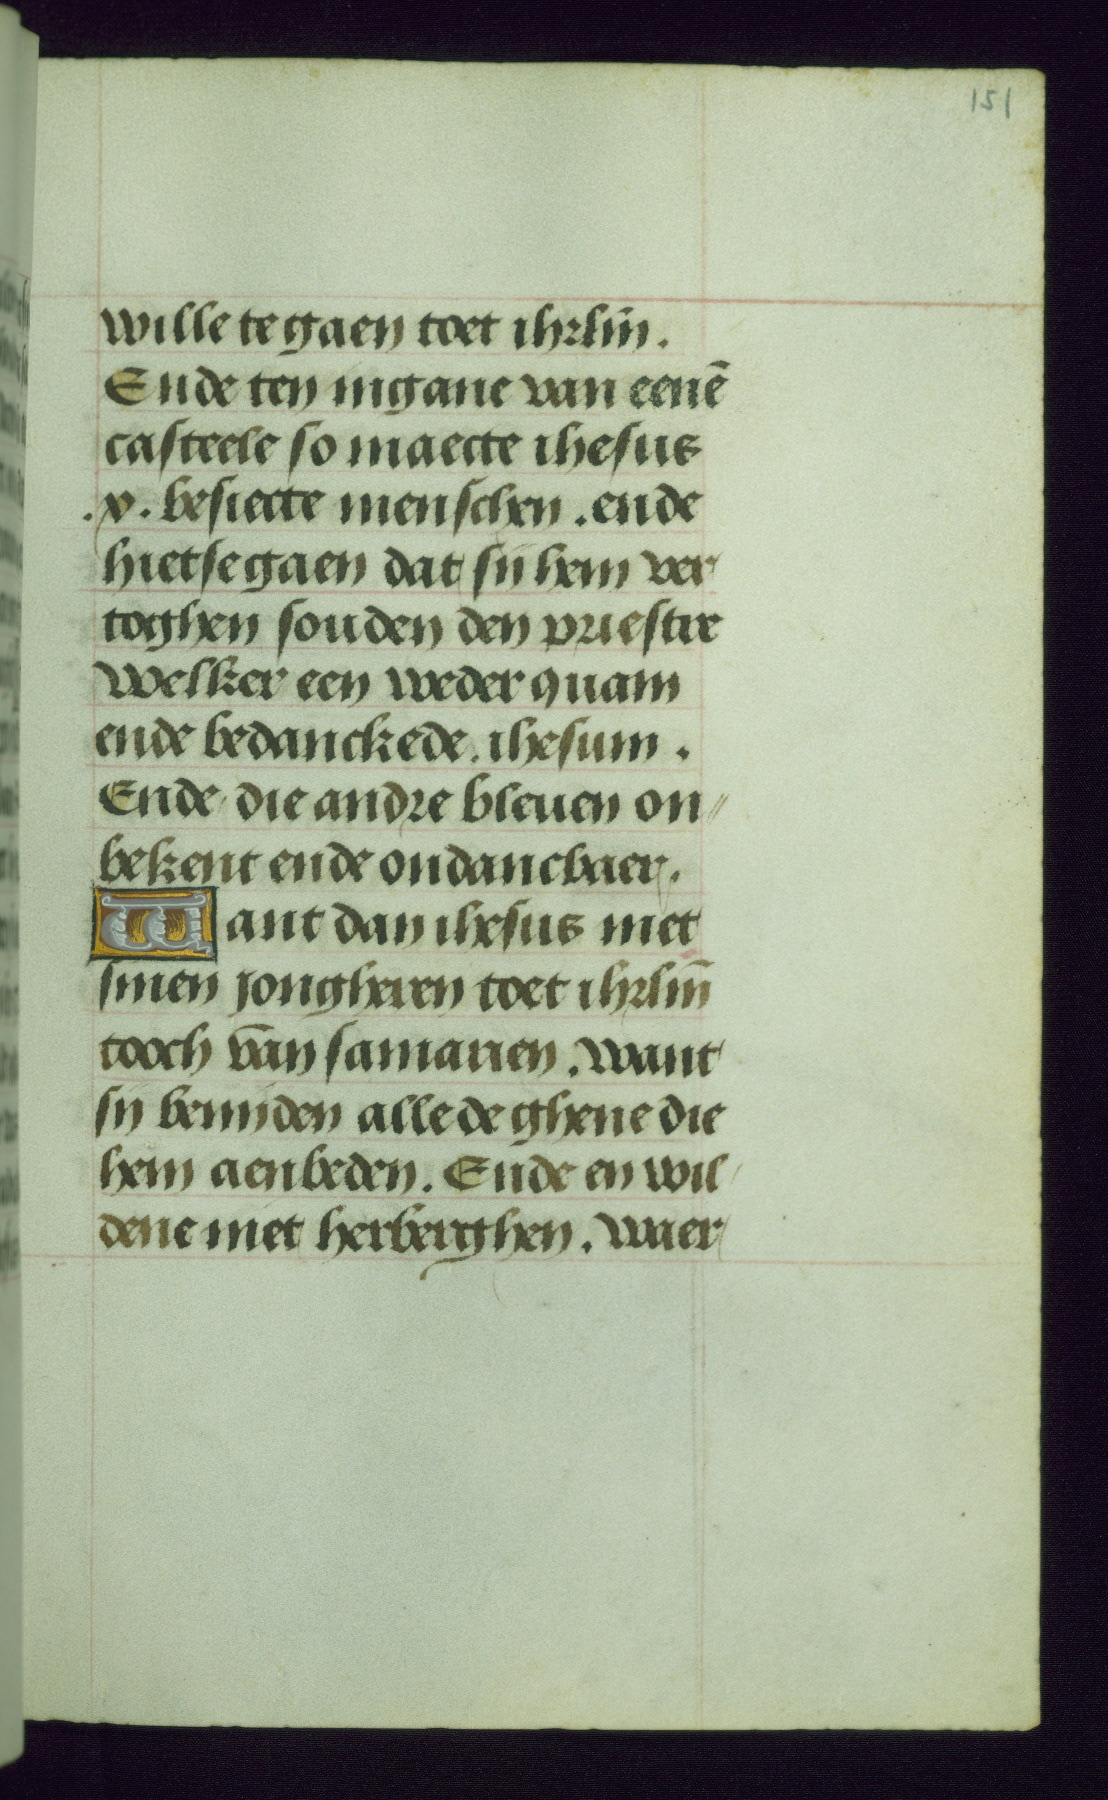 151
wille te gaen toet ihrlm̄.
Ende ten ingane van eenē
casteele so maecte ihesus
.x. besiecte menschen . ende
hietse gaen dat sij hem ver
toghen souden den priestre
Welker een weder quam
ende bedanckede. ihesum .
Ende die andre bleuen on//
bekent ende ondancbaer.
Want dan ihesus met
sinen jongheren toet ihrlm̄
tooch van samarien . want
sij benijden alle de ghene die
hem aenbeden. Ende en wil
dene niet herberghen . waer